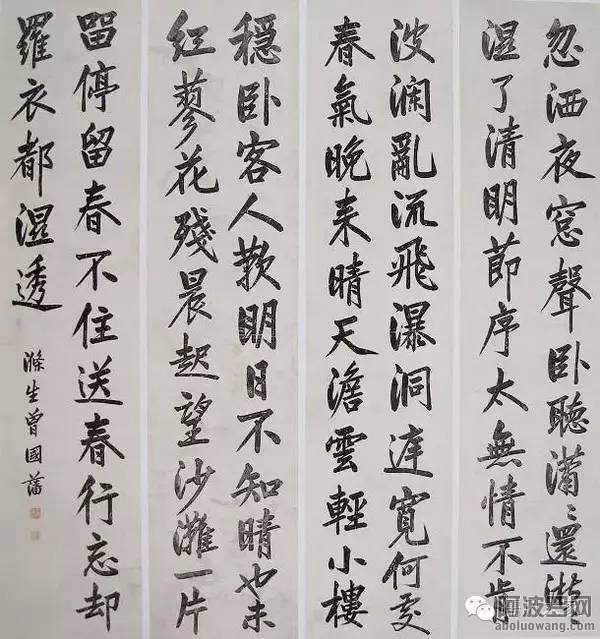 忽洒夜窓聲卧聽瀟〻還淅〻
湿了清明莭序太無情不肯
波澜亂流飛瀑洞庭寬何處
春氣晚来晴天澹雲輕小樓
穩卧客人歎明日不知晴也未
红蓼花殘晨起望沙灘一片
畱停留春不住送春行忘却
羅衣都濕透
滌生曾國藩
阿波罗网
aboluowang.com